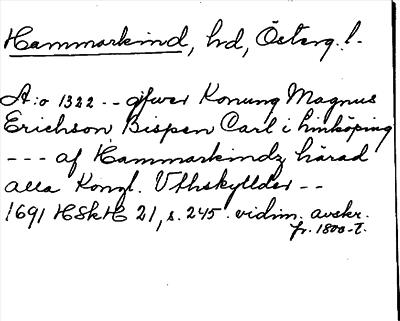 Hammarkind, hd, Österg. l.
A:o 1322 -- gifwer Konung Magnus
Erichson Bispen Carl i Linköping
--- af Hammarkindz härad
alla Kongl. Uthskyllder --
1691 HSkH 21, s. 245. vidim. avskr.
fr. 1800-t.